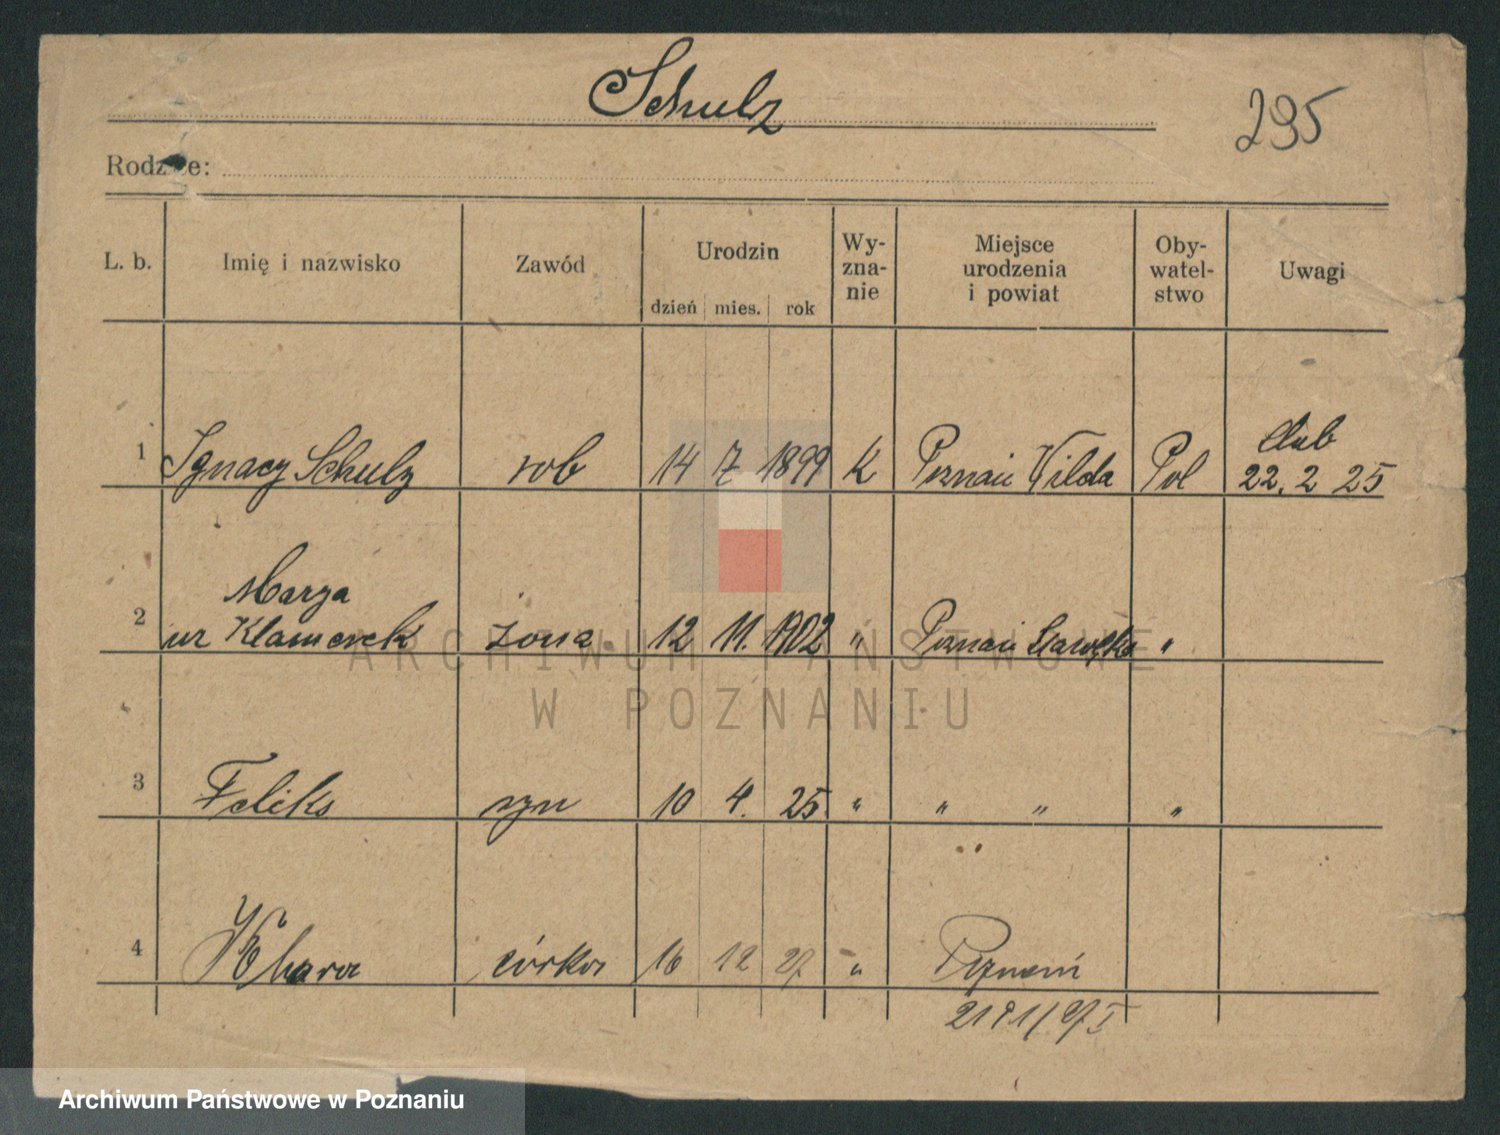 Schulz
295
Rodzice:
L. b. Imię i nazwisko Zawód Urodzin dzień mies. rok Wy-zna-nie Miejsce urodzenia i powiat Oby-watel-stwo Uwagi
ślub
1 Ignacy Schulz rob 14 7 1899 K Poznań Wilda Pol 22. 2 25
Marya
2 ur Klamerek żona 12 11. 1902 " Poznań Starołęka "
3 Feliks syn 10 4. 25 " " " "
4 córka 16 12 27 " Poznań
ARCHIWUM PAŃSTWOWE
W POZNANIU
Archiwum Państwowe w Poznaniu